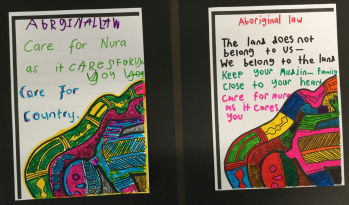 ABRGINALLAW
Care for Nura
as it CARESFORU
you you
Care For
Country.
Aboriginal law
The land does not
belong to us—
We belong to the land
Keep your Mudjin— family
close to your heart
Care for Nura
as it cares
you